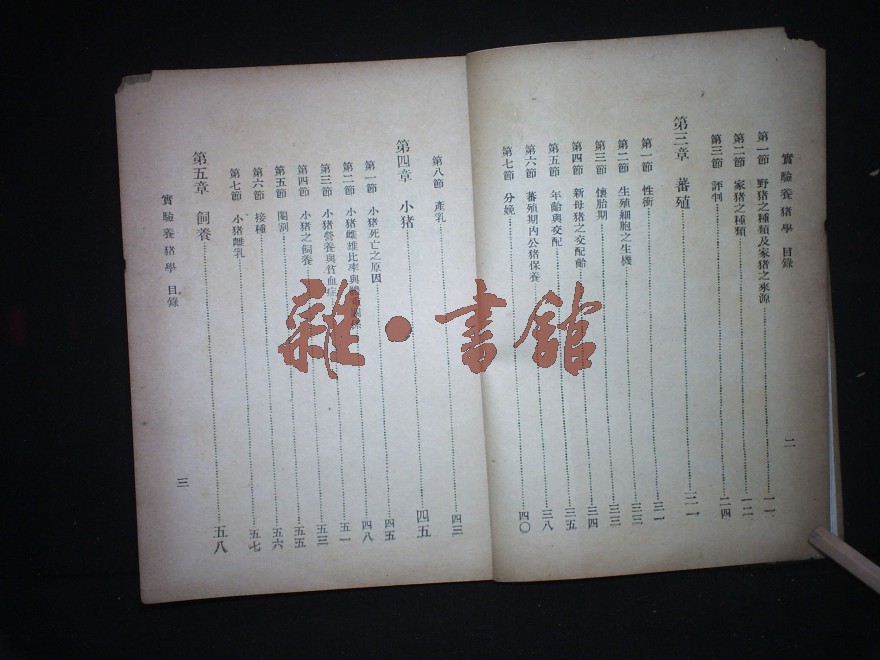 實驗養猪學 目錄
二
第一節 野猪之種類及家猪之來源 一一
第二節 家猪之種類 一二
第三節 評判 二四
第三章 蕃殖 三一
第一節 性衝 三一
第二節 生殖細胞之生機 三三
第三節 懷胎期 三三
第四節 新母猪之交配齡 三四
第五節 年齡與交配 三五
第六節 蕃殖期內公猪保養 三八
第七節 分娩 四〇
第八節 產乳 四三
第四章 小猪 四五
第一節 小猪死亡之原因 四五
第二節 小猪雌雄比率與 四八
第三節 小猪營養與貧血症 五一
第四節 小猪之飼養 五三
第五節 閹割 五五
第六節 接種 五六
第七節 小猪離乳 五七
第五章 飼養 五八
實驗養猪學 目錄
三
雜·書舘